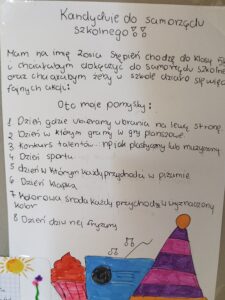 Kandyduje do samorządu
szkolnego
Mam na imię Zosia Stępień chodzę do klasy
i chciałabym dołączyć do samorządu szkolnego
oraz chciałabym żeby w szkole działo się więcej
fajnych akcji.
Oto moje pomysły:
1 Dzień gdzie ubieramy ubrania na lewą stronę
2 Dzień w którym gramy w gry planszowe
3 Konkurs talentów np. jak plastyczny lub muzyczny
4 Dzień sportu
5 dzień w którym każdy przychodzi w piżamie
6 Dzień klapka
7 Kolorowa środa każdy przychodzi w wyznaczony
kolor
8 Dzień dziwnej fryzury